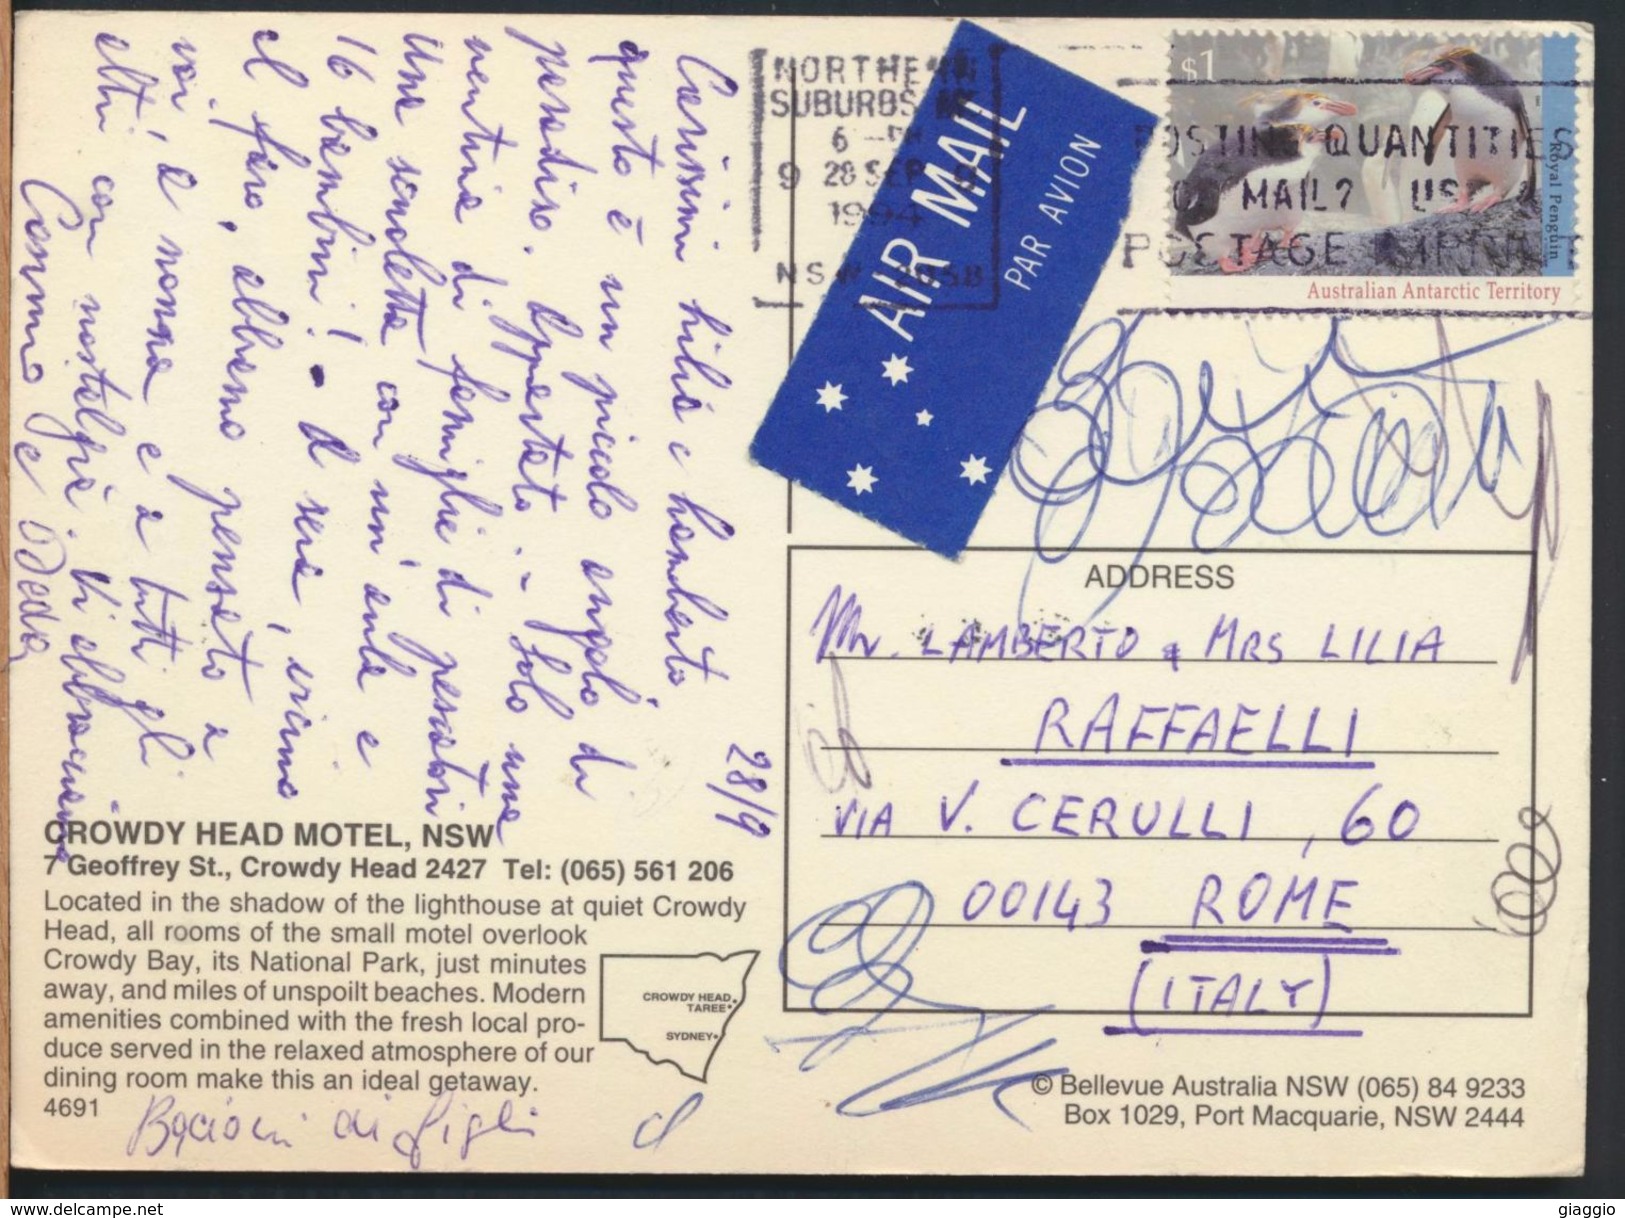 Carissimi Lilia e Lamberto,
questo è un piccolo angolo di
paradiso. Appartato - Solo una
ventina di famiglie di pescatori
una scuoletta con un'aula e
16 bambini! - A sera, vicino
al faro, abbiamo pensato a
voi, a nonna e a tutti gli
altri con nostalgia. Vi abbracciamo
Cosimo e Dada
28/9
CROWDY HEAD MOTEL, NSW
7 Geoffrey St., Crowdy Head 2427 Tel: (065) 561 206
Located in the shadow of the lighthouse at quiet Crowdy
Head, all rooms of the small motel overlook
Crowdy Bay, its National Park, just minutes
away, and miles of unspoilt beaches. Modern
amenities combined with the fresh local pro-
duce served in the relaxed atmosphere of our
dining room make this an ideal getaway.
4691
CROWDY HEAD
TAREE
SYDNEY
Bacioni di
NORTHERN
SUBURBS
6 -PM
9 28 SEP 9
1994
NSW 2058
AIR MAIL
PAR AVION
$1
Royal Penguin
Australian Antarctic Territory
POSTING QUANTITIES
OF MAIL? USE A
POSTAGE IMPRINT
ADDRESS
Mr. LAMBERTO & MRS LILIA
RAFFAELLI
VIA V. CERULLI, 60
00143 ROME
(ITALY)
© Bellevue Australia NSW (065) 84 9233
Box 1029, Port Macquarie, NSW 2444
delcampe.net
giaggio